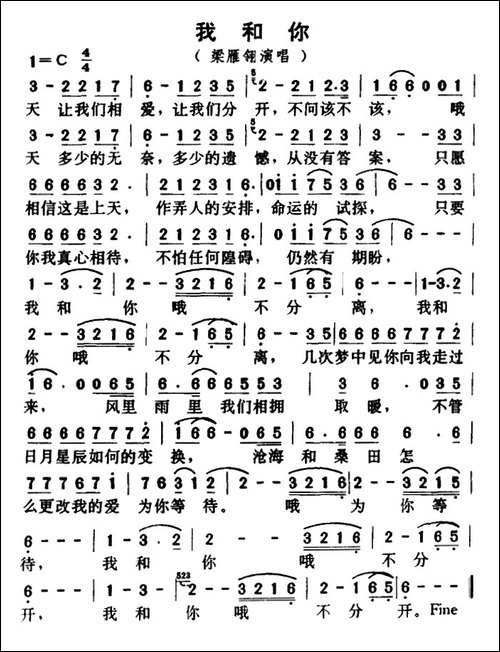 我 和 你
( 梁雁翎演唱 )
1=C 4/4
3 - 2 2 1 7 | 6 - 1 2 3 5 | 2 - 2 1 2·3 | 1 6 6 0 0 1 |
天 让我们相 爱，让我们分 开，不问该不 该， 哦
3 - 2 2 1 7 | 6 - 1 2 3 5 | 2 - 2 1 2 3 | 3 - - 3 3 |
天 多少的无 奈，多少的遗 憾，从没有答 案， 只愿
6 6 6 6 3 2 · | 2 1 2 3 1 6 · | 0 1 1 7 5 3 6 | 6 - - 3 3 |
相信这是上天， 作弄人的安排，命运的 试探， 只要
6 6 6 6 3 2 · | 2 1 2 3 1 6 · | 0 1 1 7 5 3 6 | 6 - - - |
你我真心相待， 不怕任何障碍， 仍然有 期盼，
1 - 3 · 2 | 2 - - 3 2 1 6 | 2 - 1 6 5 | 6 - - - | 1 - 3 · 2 |
我 和 你 哦 不 分 离， 我和
2 - - 3 2 1 6 | 2 - 1 6 5 | 6 - - 3 5 | 6 6 6 6 7 7 7 2 |
你 哦 不 分 离， 几次梦中见你向我走过
1 6 · 0 0 6 5 | 6 · 6 6 6 5 5 | 3 5 6 · 6 | 6 · 0 3 5 |
来， 风里 雨里 我们相拥 取 暖， 不管
6 6 6 6 7 7 7 2 | 1 6 6 - 0 6 5 | 6 · 6 6 6 | 6 · 6
日月星辰如何的变 换， 沧海 和 桑 田 怎
7 7 7 6 7 1 | 7 6 3 1 2 | 2 - - 3 2 1 6 | 2 - 3 2 1 5 |
么更改我的爱 为你等 待。 哦 为 你 等
6 - - - | 1 - 3 · 2 | 2 - - 3 2 1 6 | 2 - 1 6 5 |
待， 我 和 你 哦 不 分
6 - - - | 1 - 3 - | 523 2 - - 3 2 1 6 | 2 - 1 6 5 | 6 - - - ‖
开， 我 和 你 哦 不 分 开。Fine